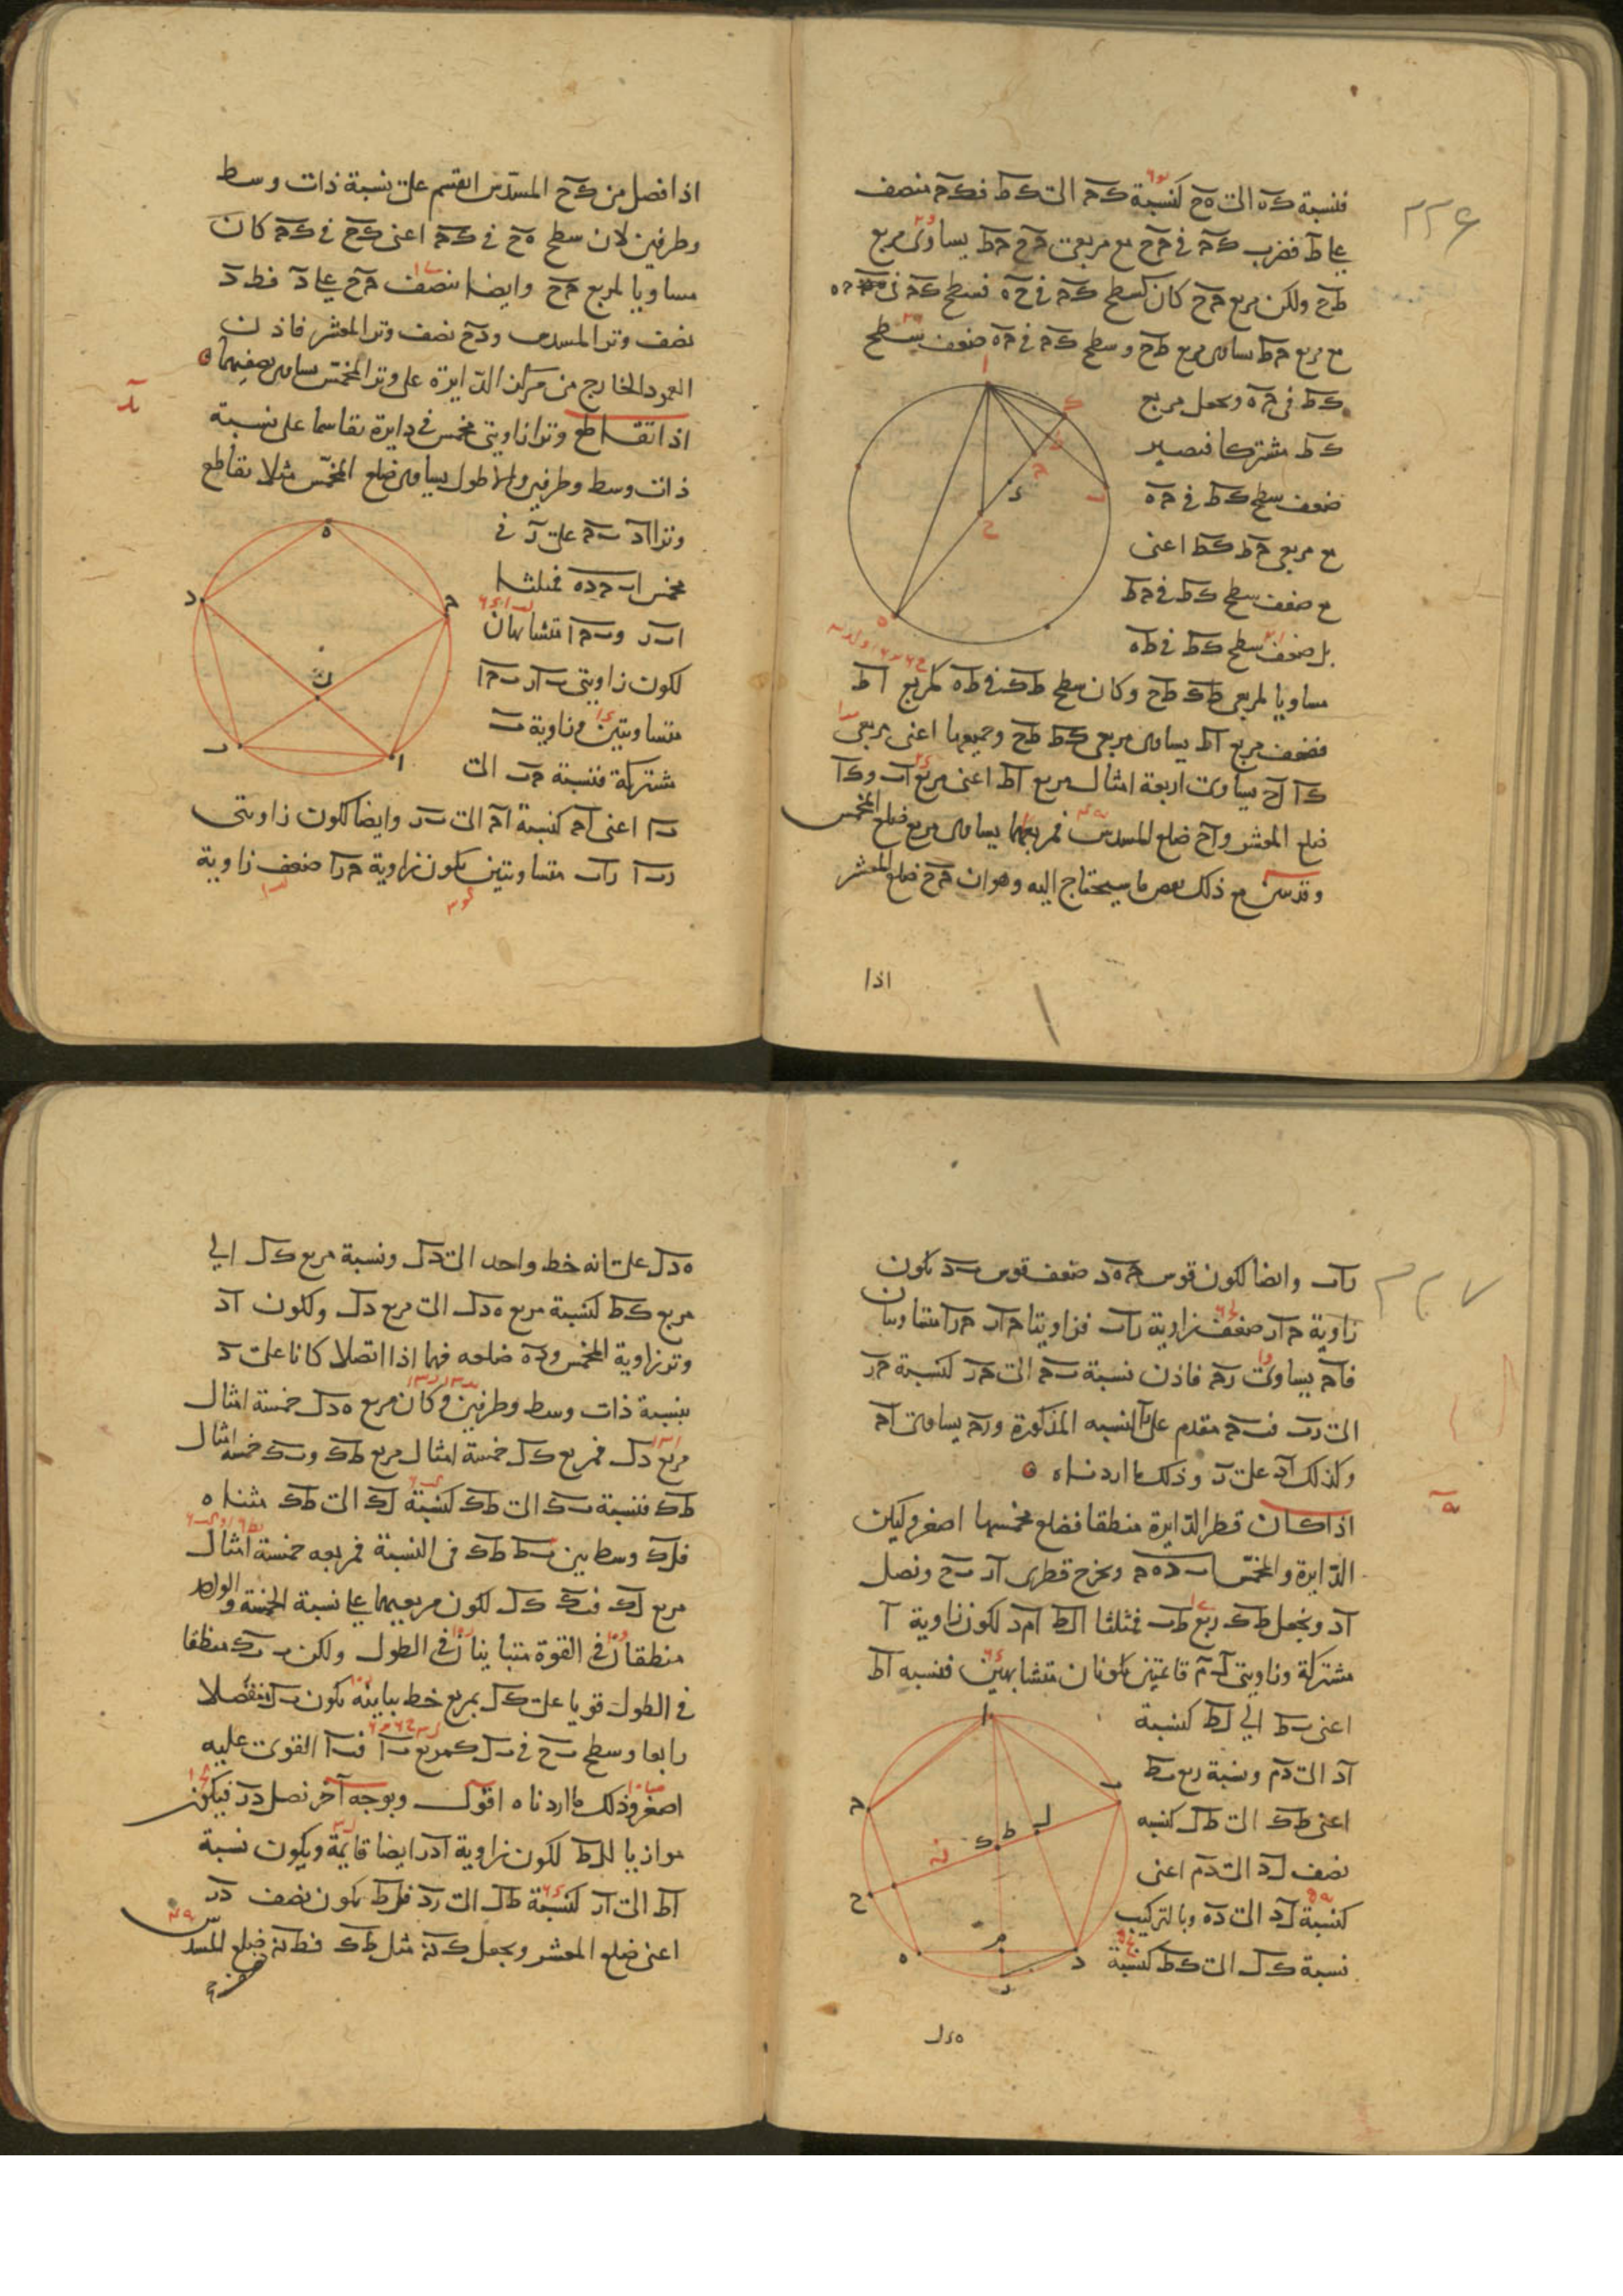 فنسبة كه الى هح كنسبة كح الى كط فكح منصف
على ط فضرب كح في حج مع مربعي
طح ولكن مربع حج كان كسطح كح في حه فسطح كح في
مع مربع حط يساوى مربع طح وسطح كح في حه ضعف سطح
كط في حه ونجعل مربع
كط مشتركا فيصير
ضعف سطح كط في حه
مع مربعي حط كط اعنى
مع ضعف سطح كط في حط
بل ضعف سطح كط في طه
مساويا لمربعي طك طح وكان سطح طك في طه كمربع اط
فضعف مربع اط يساوى مربعي كط طح وجميعها اعنى مربعي
كا اح يساوى اربعة امثال مربع اط اعنى مربع اب وكا
ضلع المعشر واح ضلع المسدس فمربعهما يساوى مربع ضلع المخمس
وقد تبين مع ذلك بعض ما سيحتاج اليه وهو ان حج ضلع المعشر
اذا
اذا فصل من كح المسدس انقسم على نسبة ذات وسط
وطرفين لان سطح هح في كح اعنى كح في كح كان
مساويا لمربع حج وايضا ننصف حج على د فطد
نصف وتر المسدس ودح نصف وتر المعشر فاذن
العمود الخارج من مركز الدايرة على وتر المخمس يساوى نصفيهما
اذا تقاطع وترا زاويتى مخمس في دايرة تقاسما على نسبة
ذات وسط وطرفين والاطول يساوى ضلع المخمس مثلا تقاطع
وترا اد بح على ر في
مخمس اب حده فمثلثا
ابر وبحا متشابهان
لكون زاويتى بار بحا
متساويتين وزاوية ب
مشتركة فنسبة حب الى
با اعنى اح كنسبة اح الى بر وايضا لكون زاويتى
ربا راب متساويتين يكون زاوية حرا ضعف زاوية
٣٣٧
راب وايضا لكون قوس حهد ضعف قوس بد يكون
زاوية حار ضعف زاوية راب فزاويتا حار حرا متساويتان
فاح يساوى رح فاذن نسبة بح الى حر كنسبة حر
الى رب فبح مقدم على النسبه المذكورة ورح يساوى اح
وكذلك اد على ر وذلك ما اردناه
اذا كان قطر الدايرة منطقا فضلع مخمسها اصغر وليكن
الدايرة والمخمس اب دهح ونخرج قطرى ار بح ونصل
اد ونجعل طك ربع طب فمثلثا الط امد لكون زاوية ا
مشتركة وزاويتى ل م قائمتين يكونان متشابهين فنسبه اط
اعنى بط الى لط كنسبة
اد الى دم ونسبة ربع بط
اعنى طك الى طل كنسبه
نصف لد الى دم اعنى
كنسبة لد الى ده وبالتركيب
نسبة كل الى كط كنسبة
هدل
هدل على انه خط واحد الى دل ونسبة مربع كل الى
مربع كط كنسبة مربع هدل الى مربع دل ولكون اد
وتر زاوية المخمس وده ضلعه فهما اذا اتصلا كانا على د
بنسبة ذات وسط وطرفين وكان مربع هدل خمسة امثال
مربع دل فمربع كل خمسة امثال مربع طك وبك خمسة امثال
طك فنسبة بك الى طك كنسبة لك الى طك مثناه
فلك وسط بين بك طك في النسبة فمربعه خمسة امثال
مربع لك فبك كل لكون مربعيهما على نسبة الخمسة والواحد
منطقان في القوة متباينان في الطول ولكن بك منطقا
في الطول قويا على كل بمربع خط يباينه يكون بل منفصلا
رابعا وسطح بح في بل كمربع با فبا القوى عليه
اصغر وذلك ما اردناه اقول وبوجه آخر نصل در فيكون
موازيا للط لكون زاوية ادر ايضا قايمة ويكون نسبة
اط الى ار كنسبة طل الى رد فلط يكون نصف در
اعنى ضلع المعشر ونجعل كنه مثل طك فطنه ضلع المسدس